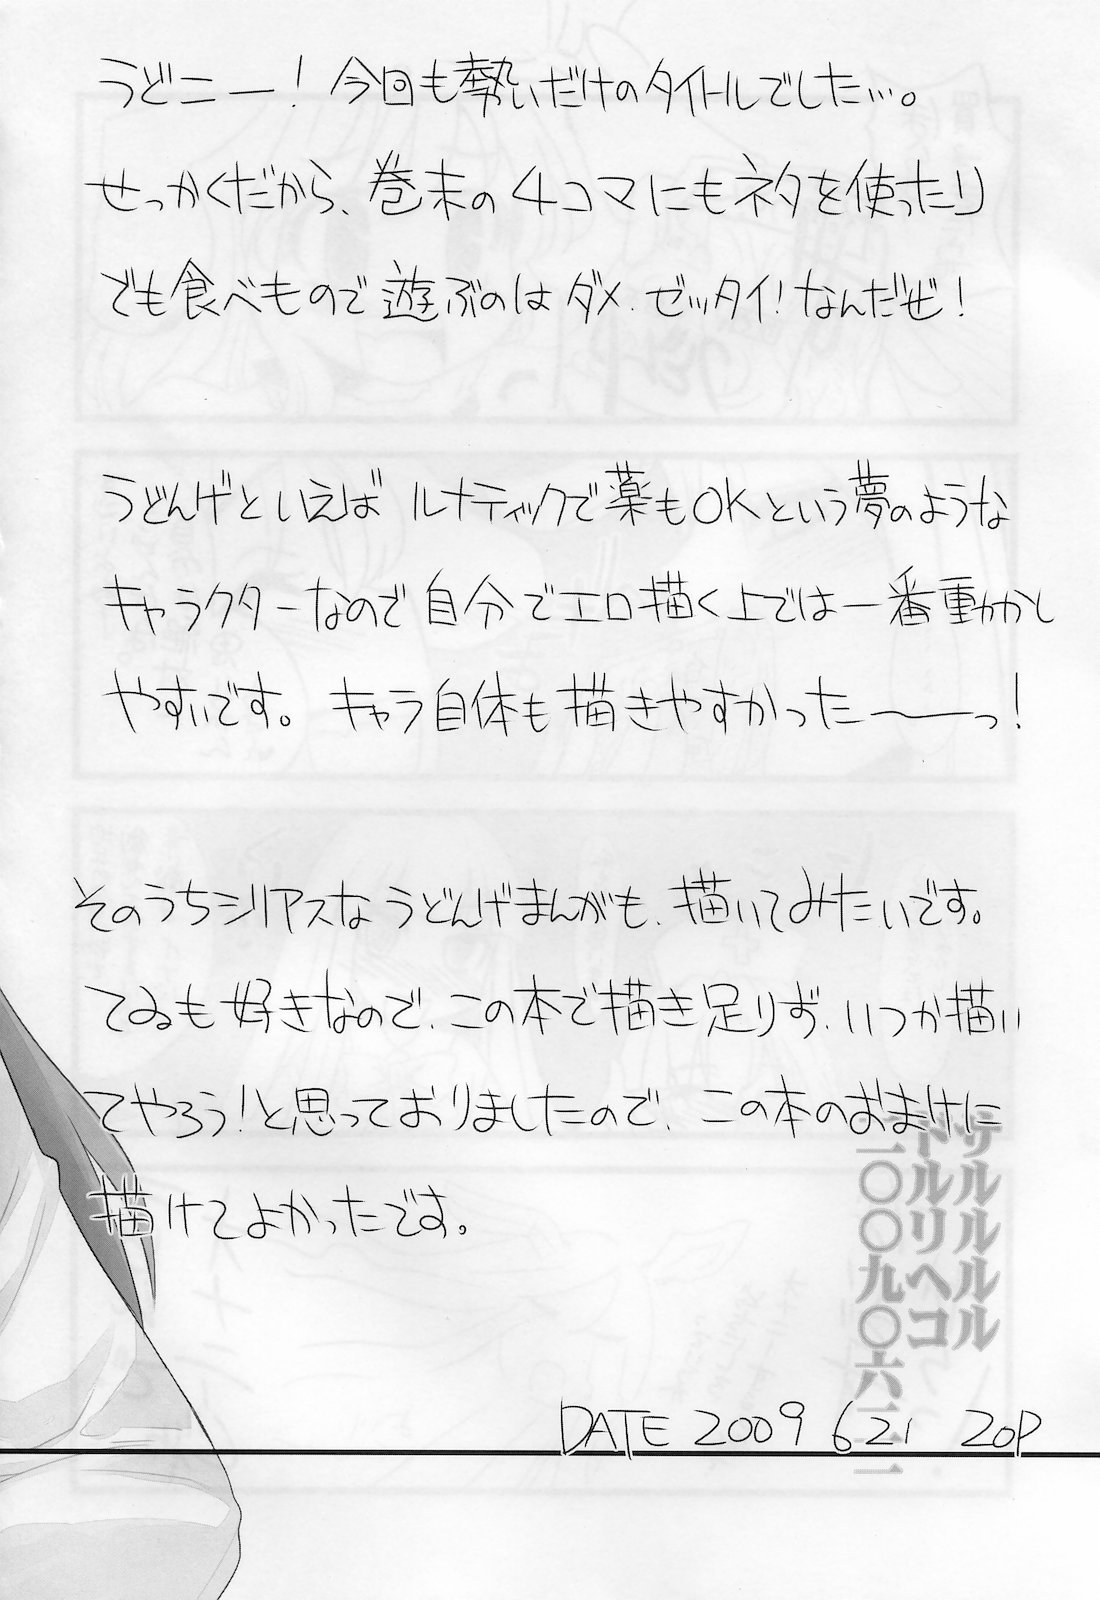 うどニー！今回も勢いだけのタイトルでした…。
せっかくだから、巻末の4コマにもネタを使ったり
でも食べもので遊ぶのはダメ．ゼッタイ！なんだぜ！
うどんげといえば ルナティックで薬もOKという夢のような
キャラクターなので自分でエロ描く上では一番動かし
やすいです。 キャラ自体も描きやすかった〜ーっ！
そのうちシリアスなうどんげまんがも、描いてみたいです。
てゐも好きなので、この本で描き足りず、いつか描い
てやろう！と思っておりましたので、この本のおまけに
描けてよかったです。
ゲルルルルル
ドルリヘコ
二〇〇九〇六二一
DATE 2009 621 ZOP